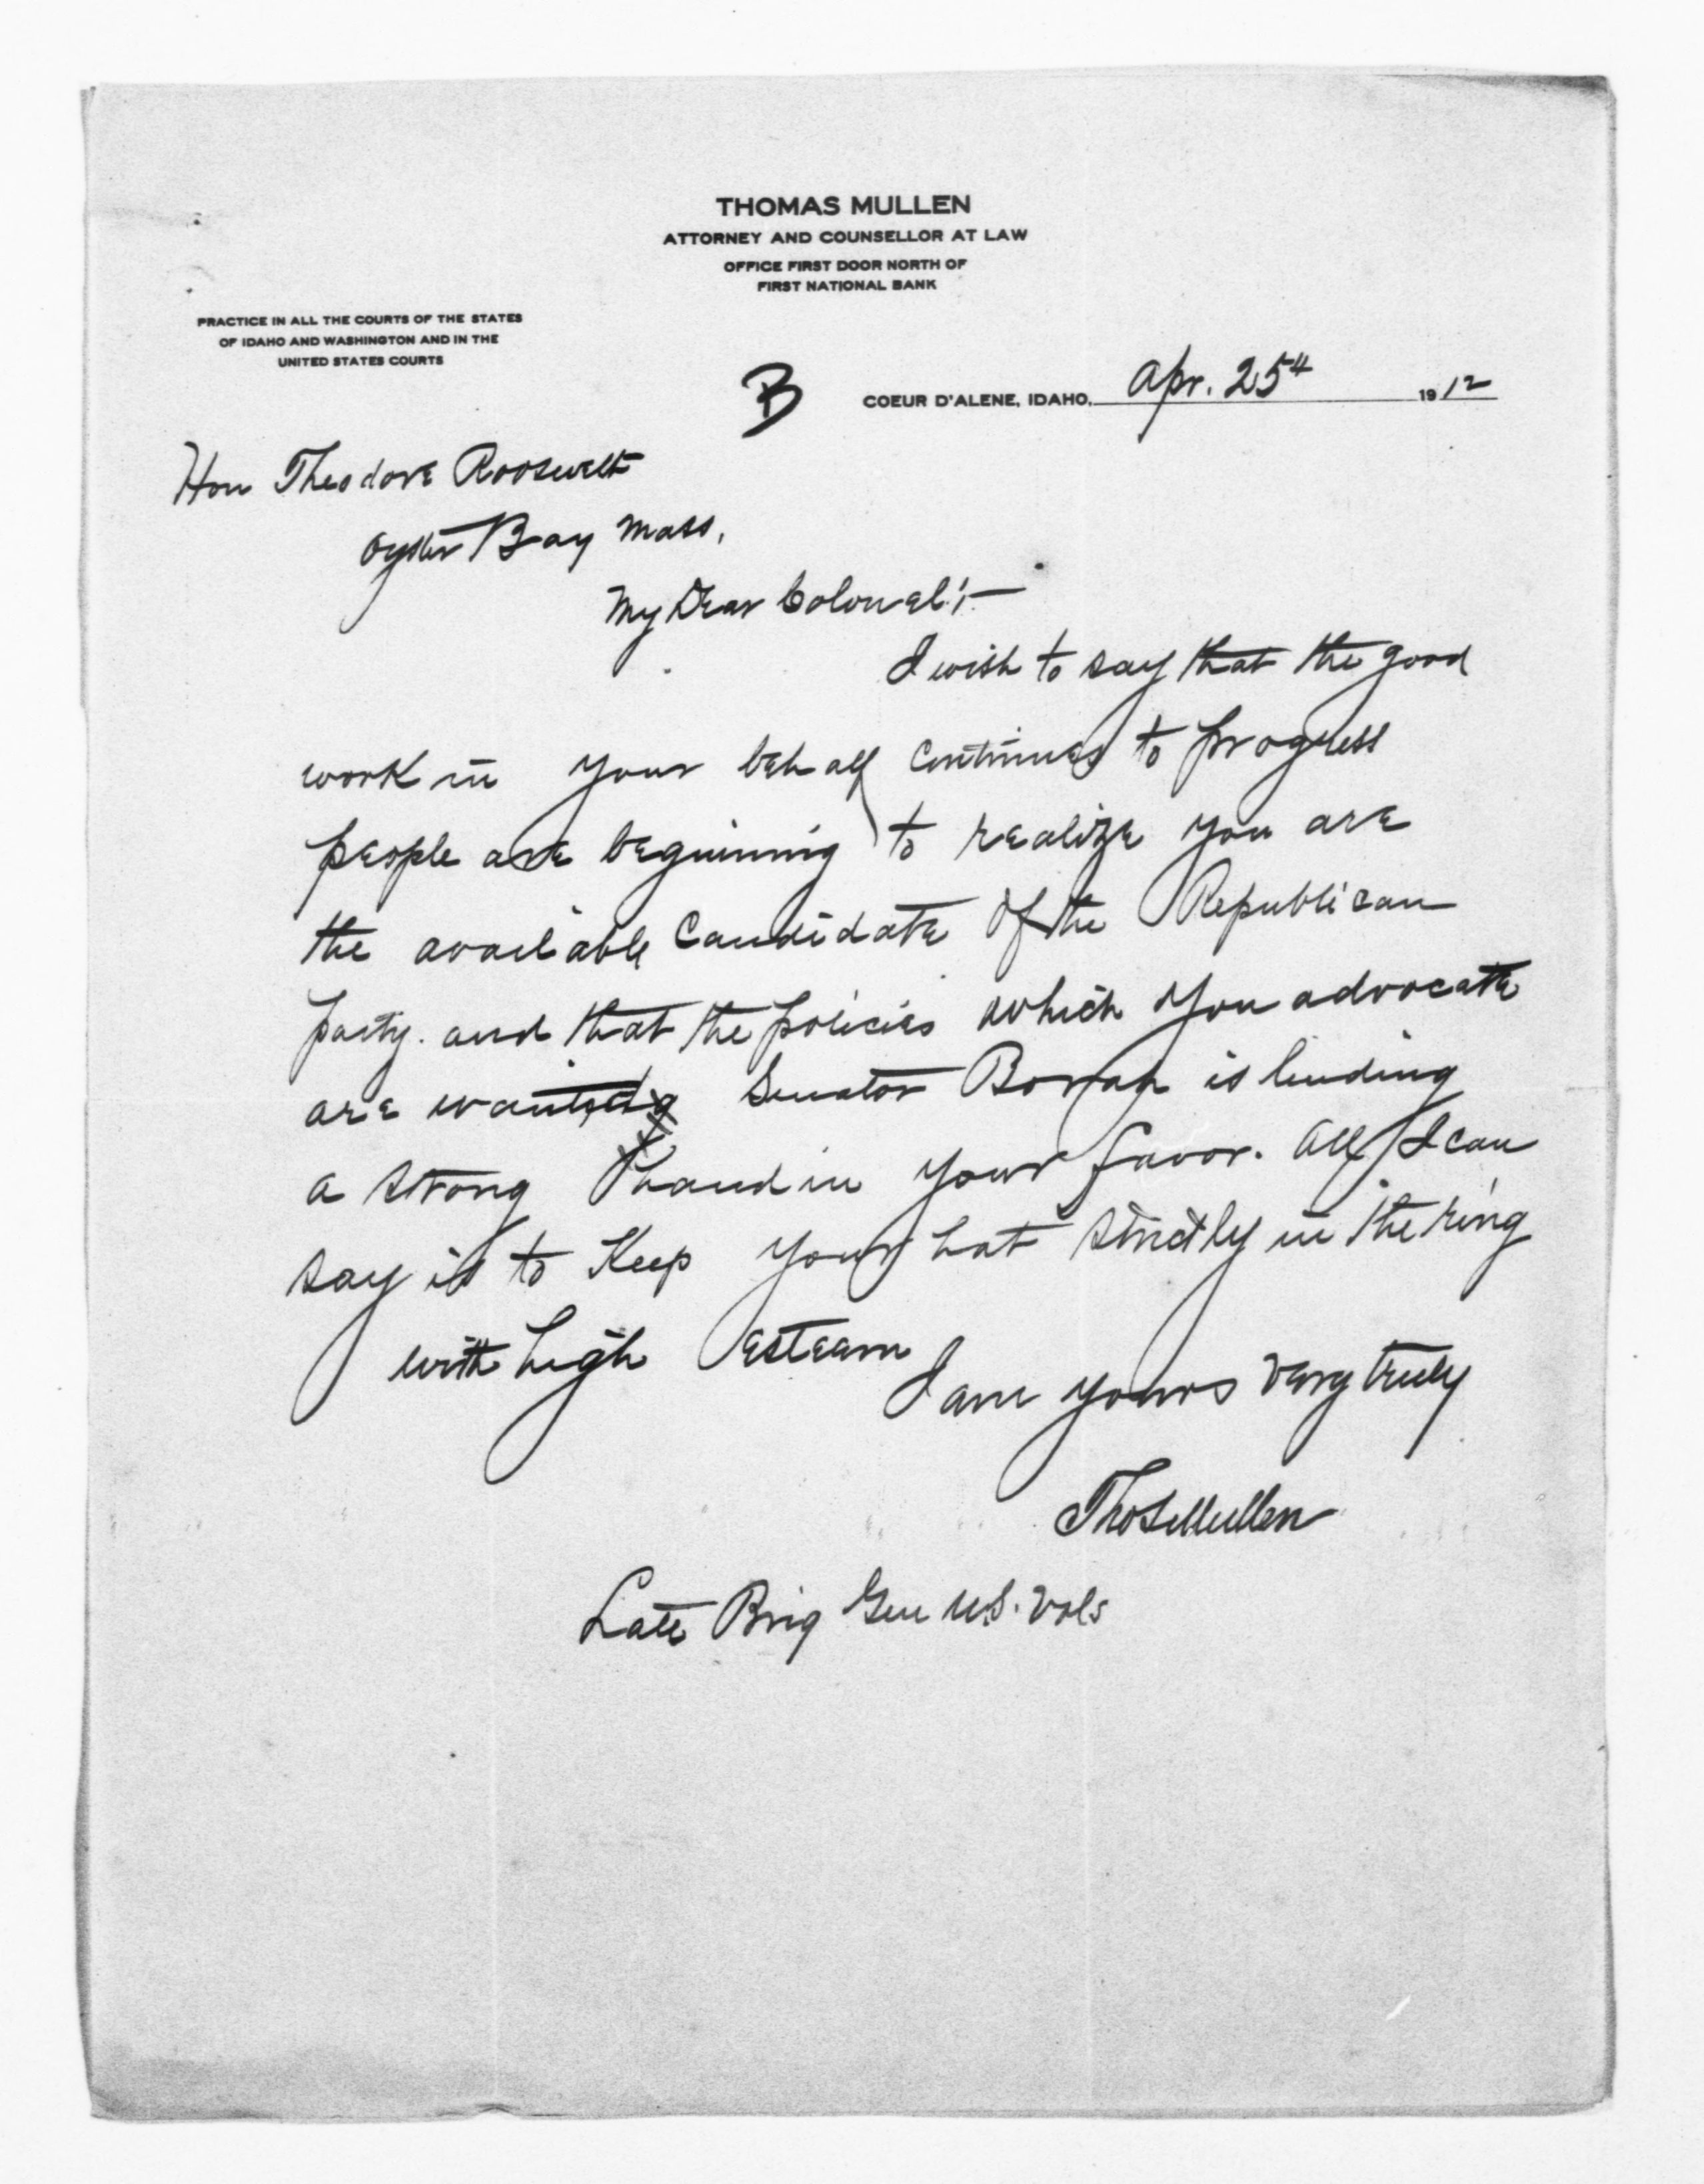 THOMAS MULLEN
ATTORNEY AND COUNSELLOR AT LAW
OFFICE FIRST DOOR NORTH OF
FIRST NATIONAL BANK
PRACTICE IN ALL THE COURTS OF THE STATES
OF IDAHO AND WASHINGTON AND IN THE
UNITED STATES COURTS
B
COEUR D'ALENE, IDAHO, Apr. 25th 1912
Hon Theodore Roosevelt
Oyster Bay Mass,
My Dear Colonel:-
I wish to say that the good
work in your behalf continues to progress
people are beginning to realize you are
the available candidate of the Republican
party. and that the policies which you advocate
are wanted Senator Borah is lending
a strong hand in your favor. All I can
say is to Keep your hat strictly in the ring
with high esteam
I am yours very truly
Thos Mullen
Late Brig Gen U.S. Vols